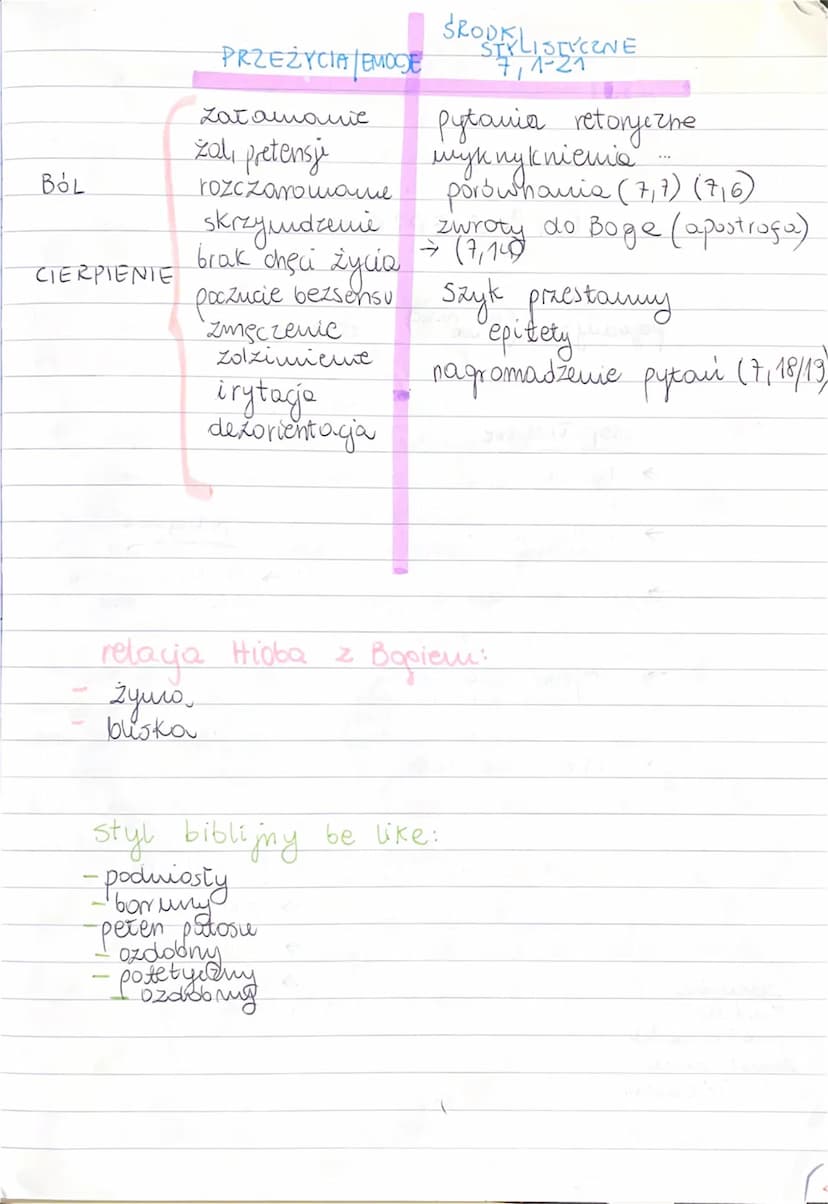 ŚRODKI
STYLISTYCZNE
PRZEŻYCIA/EMOCJE 7, 1-21
załamanie
żal, pretensje
BÓL rozczarowanie
skrzywdzenie
CIERPIENIE brak chęci życia
poczucie bezsensu
zmęczenie
zdziwienie
irytacja
dezorientacja
pytania retoryczne
wyknyknienia ...
porównania (7,7) (7,6)
zwroty do Boga (apostrofa)
→ (7,14)
szyk przestawny
epitety
nagromadzenie pytań (7,18/19)
relacja Hioba z Bogiem:
- żywa,
- bliska
styl biblijny be like:
- podniosły
- barwny
- pełen patosu
- ozdobny
- patetyczny
- ozdobny